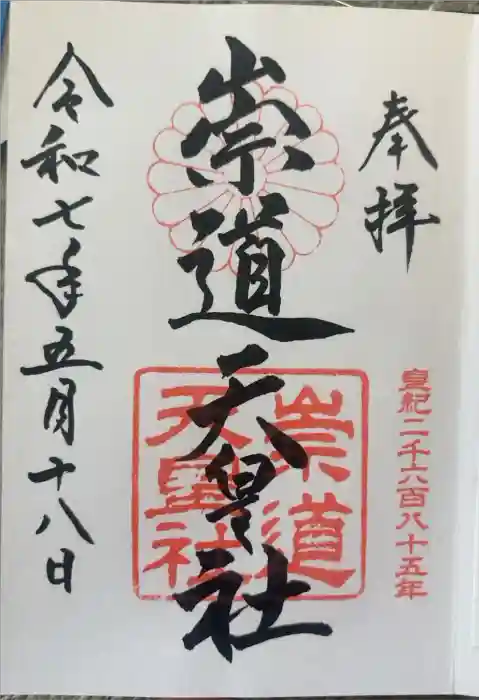 奉拝
皇紀二千六百八十五年
崇道天皇社
崇道
天皇社
令和七年五月十八日